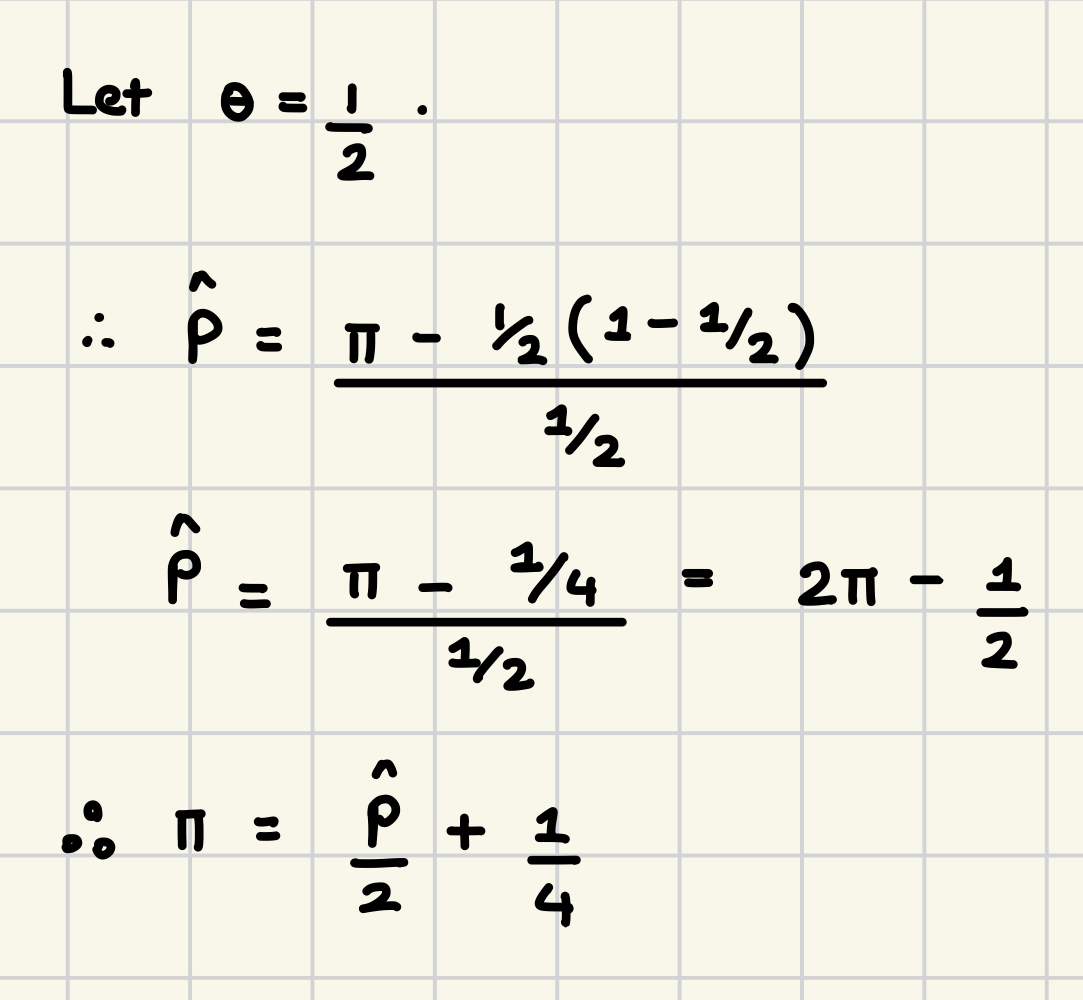 Let θ = 1/2 .
∴ p̂ = (π - 1/2 (1 - 1/2)) / (1/2)
p̂ = (π - 1/4) / (1/2) = 2π - 1/2
∴ π = p̂/2 + 1/4